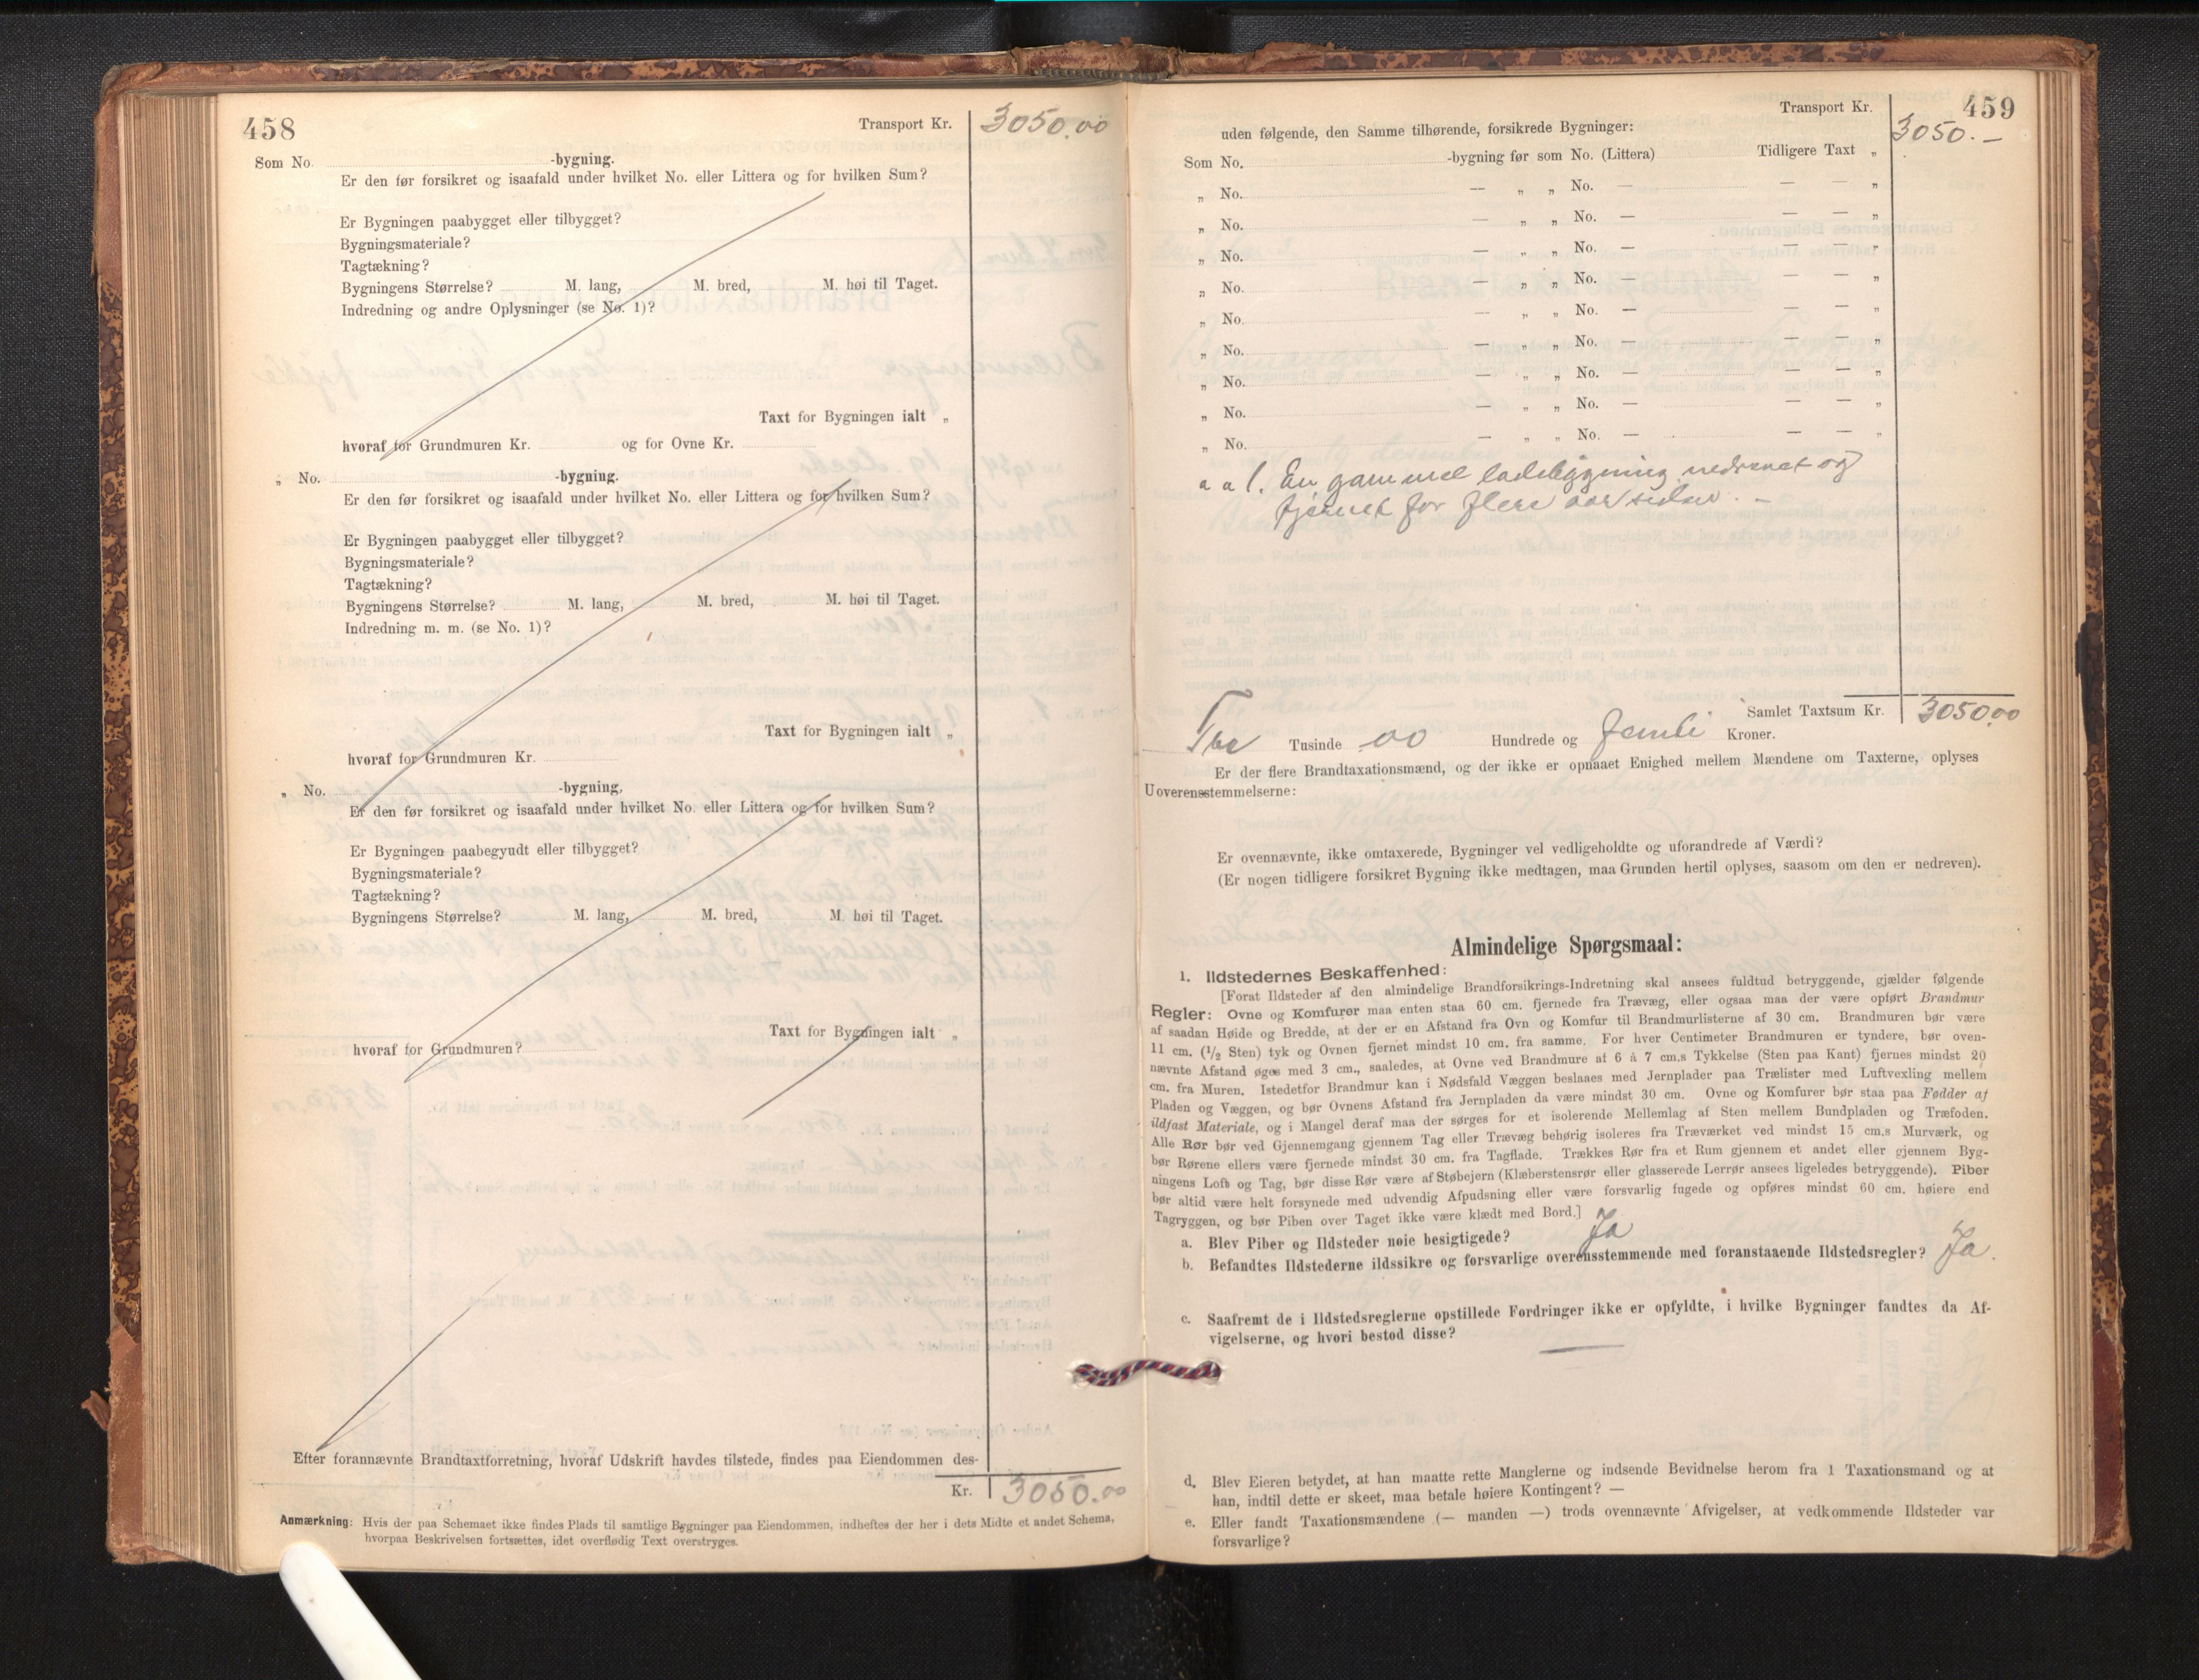 458
Transport Kr. 3050.00
Som No. -bygning.
Er den før forsikret og isaafald under hvilket No. eller Littera og for hvilken Sum?
Er Bygningen paabygget eller tilbygget?
Bygningsmateriale?
Tagtækning?
Bygningens Størrelse? M. lang, M. bred, M. høi til Taget.
Indredning og andre Oplysninger (se No. 1)?
Taxt for Bygningen ialt „
hvoraf for Grundmuren Kr. og for Ovne Kr.
„ No. -bygning.
Er den før forsikret og isaafald under hvilket No. eller Littera og for hvilken Sum?
Er Bygningen paabygget eller tilbygget?
Bygningsmateriale?
Tagtækning?
Bygningens Størrelse? M. lang, M. bred, M. høi til Taget.
Indredning m. m. (se No. 1)?
Taxt for Bygningen ialt „
hvoraf for Grundmuren Kr.
„ No. -bygning,
Er den før forsikret og isaafald under hvilket No. eller Littera og for hvilken Sum?
Er Bygningen paabegyudt eller tilbygget?
Bygningsmateriale?
Tagtækning?
Bygningens Størrelse? M. lang, M. bred, M. høi til Taget.
Taxt for Bygningen ialt „
hvoraf for Grundmuren?
Efter forannævnte Brandtaxtforretning, hvoraf Udskrift havdes tilstede, findes paa Eiendommen des-
Kr. 3050.00
Anmærkning: Hvis der paa Schemaet ikke findes Plads til samtlige Bygninger paa Eiendommen, indheftes der her i dets Midte et andet Schema,
hvorpaa Beskrivelsen fortsættes, idet overflødig Text overstryges.
459
Transport Kr. 3050.–
uden følgende, den Samme tilhørende, forsikrede Bygninger:
Som No. -bygning før som No. (Littera) Tidligere Taxt „
„ No. — „ „ No. — — — „
„ No. — „ „ No. — — — „
„ No. — „ „ No. — — — „
„ No. — „ „ No. — — — „
„ No. — „ „ No. — — — „
„ No. — „ „ No. — — — „
„ No. — „ „ No. — — — „
„ No. — „ „ No. — — — „
„ No. — „ „ No. — — — „
a a 1. En gammel ladebygning nedrevet og
fjernet for flere aar siden. –
Samlet Taxtsum Kr. 3050.00
Tre Tusinde 00 Hundrede og femti Kroner.
Er der flere Brandtaxationsmænd, og der ikke er opnaaet Enighed mellem Mændene om Taxterne, oplyses
Uoverensstemmelserne:
Er ovennævnte, ikke omtaxerede, Bygninger vel vedligeholdte og uforandrede af Værdi?
(Er nogen tidligere forsikret Bygning ikke medtagen, maa Grunden hertil oplyses, saasom om den er nedreven).
Almindelige Spørgsmaal:
1. Ildstedernes Beskaffenhed:
[Forat Ildsteder af den almindelige Brandforsikrings-Indretning skal ansees fuldtud betryggende, gjælder følgende
Regler: Ovne og Komfurer maa enten staa 60 cm. fjernede fra Trævæg, eller ogsaa maa der være opført Brandmur
af saadan Høide og Bredde, at der er en Afstand fra Ovn og Komfur til Brandmurlisterne af 30 cm. Brandmuren bør være
11 cm. (1/2 Sten) tyk og Ovnen fjernet mindst 10 cm. fra samme. For hver Centimeter Brandmuren er tyndere, bør oven-
nævnte Afstand øges med 3 cm., saaledes, at Ovne ved Brandmure af 6 à 7 cm.s Tykkelse (Sten paa Kant) fjernes mindst 20
cm. fra Muren. Istedetfor Brandmur kan i Nødsfald Væggen beslaaes med Jernplader paa Trælister med Luftvexling mellem
Pladen og Væggen, og bør Ovnens Afstand fra Jernpladen da være mindst 30 cm. Ovne og Komfurer bør staa paa Fødder af
ildfast Materiale, og i Mangel deraf maa der sørges for et isolerende Mellemlag af Sten mellem Bundpladen og Træfoden.
Alle Rør bør ved Gjennemgang gjennem Tag eller Trævæg behørig isoleres fra Træværket ved mindst 15 cm.s Murværk, og
bør Rørene ellers være fjernede mindst 30 cm. fra Tagflade. Trækkes Rør fra et Rum gjennem et andet eller gjennem Byg-
ningens Loft og Tag, bør disse Rør være af Støbejern (Klæberstensrør eller glasserede Lerrør ansees ligeledes betryggende). Piber
bør altid være helt forsynede med udvendig Afpudsning eller være forsvarlig fugede og opføres mindst 60 cm. høiere end
Tagryggen, og bør Piben over Taget ikke være klædt med Bord.]
a. Blev Piber og Ildsteder nøie besigtigede? Ja
b. Befandtes Ildstederne ildssikre og forsvarlige overensstemmende med foranstaaende Ildstedsregler? Ja.
c. Saafremt de i Ildstedsreglerne opstillede Fordringer ikke er opfyldte, i hvilke Bygninger fandtes da Af-
vigelserne, og hvori bestod disse?
d. Blev Eieren betydet, at han maatte rette Manglerne og indsende Bevidnelse herom fra 1 Taxationsmand og at
han, indtil dette er skeet, maa betale høiere Kontingent? —
e. Eller fandt Taxationsmændene (— manden —) trods ovennævnte Afvigelser, at vedkommende Ildsteder var
forsvarlige?